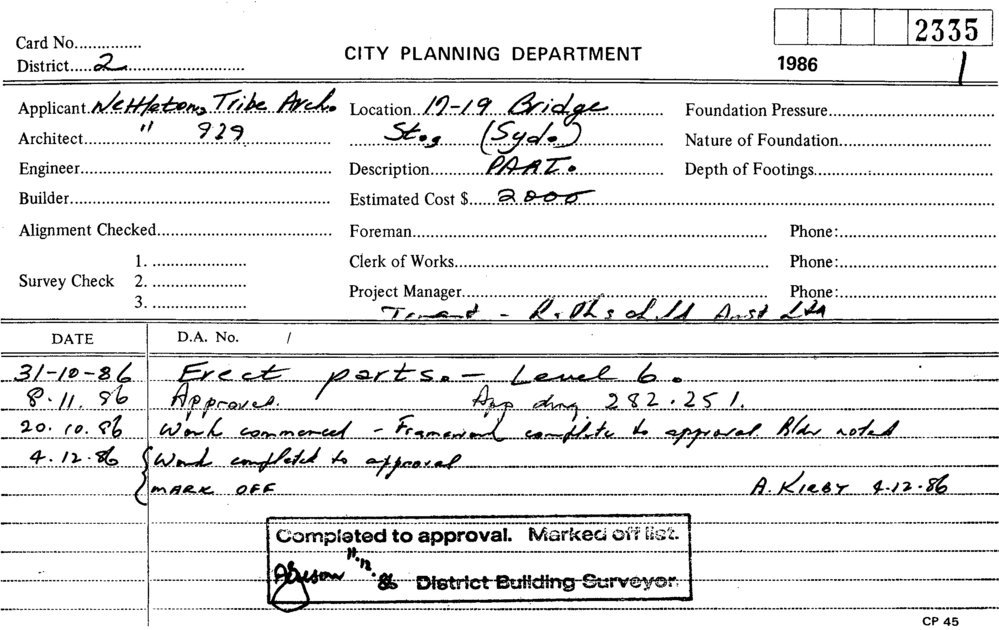 2335
Card No...............
District.....2..............................
CITY PLANNING DEPARTMENT
1986
1
Applicant Nettleton, Tribe Arch.
Location 17-19 Bridge
Foundation Pressure
Architect " 929
St., (Syd.)
Nature of Foundation
Engineer
Description PART.
Depth of Footings
Builder
Estimated Cost $ 2000
Alignment Checked
Foreman
Phone:
Survey Check
1.
2.
3.
Clerk of Works
Phone:
Project Manager
Phone:
Tenant - Rothschild Aust Ltd
DATE
D.A. No. /
31-10-86 Erect parts. - Level 6.
8.11.86 Approved. App drng 282.251.
20.10.86 Work commenced - Framework complete to approval. Bldr noted
4.12.86 Work completed to approval
MARK OFF A. KIRBY 4.12.86
Completed to approval. Marked off list.
11.12.86 District Building Surveyor.
CP 45